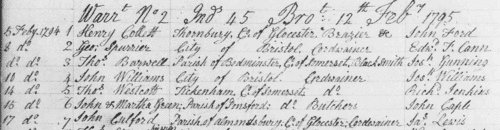 Warrt. No 2 Ind. 45 Brot. 12th Feby 1795
5 Feby. 1794 1 Henry Collett Thornbury, C. of Glocester Brazier &c John Ford
8 do. 2 Geo. Spurrier City of Bristol, Cordwainer Edwd. T. Cann
do do. 3 Thos. Barwell Parish of Bedminster, C. of Somerset, Black Smith Jos. Gunning
10 do. 4 John Williams City of Bristol Cordwainer Jos. Williams
14 do 5 Thos. Westcott Tickenham, C. of Somerset do Richd. Jenkins
16 do 6 John & Martha Green, Parish of do Butchers John Caple
17 do, 7 John Parish of almondsbury, C. of Glocester, Cordwainer Jas. Lewis